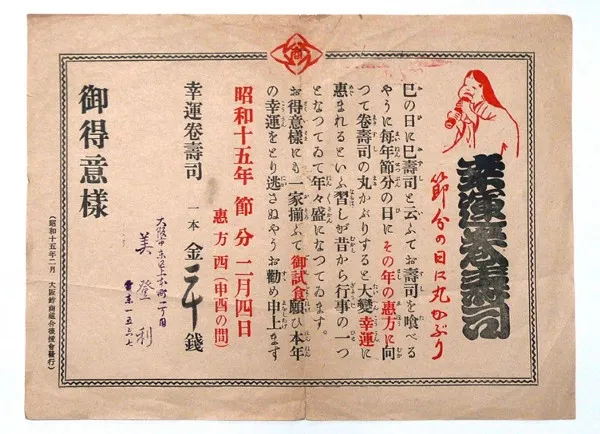 幸運卷壽司
節分の日に丸かぶり
巳の日に巳壽司と云ふてお壽司を喰べる
やうに毎年節分の日にその年の惠方に向
つて卷壽司の丸かぶりすると大變幸運に
惠まれるといふ習しが昔から行事の一つ
となつてゐて年々盛になつてゐます。
お得意樣にも一家揃ふて御試食願ひ本年
の幸運をとり逃さぬやうお勸め申上ます
昭和十五年 節分 二月四日
惠方西(申酉の間)
幸運卷壽司 一本 金二十錢
大阪市東区上本町一丁目
美登利
御得意樣
(昭和十五年二月 大阪鮓商組合後援會發行)